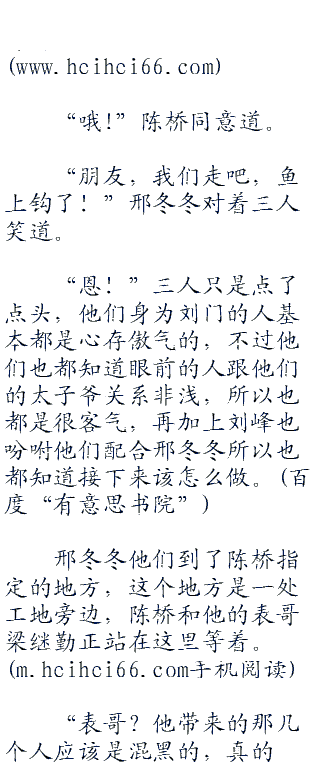 (www.hcihci66.com)
“哦!”陈桥同意道。
“朋友，我们走吧，鱼
上钩了！”邢冬冬对着三人
笑道。
“恩！”三人只是点了
点头，他们身为刘门的人基
本都是心存傲气的，不过他
们也都知道眼前的人跟他们
的太子爷关系非浅，所以也
都是很客气，再加上刘峰也
吩咐他们配合邢冬冬所以也
都知道接下来该怎么做。(百
度“有意思书院”)
邢冬冬他们到了陈桥指
定的地方，这个地方是一处
工地旁边，陈桥和他的表哥
梁继勤正站在这里等着。
(m.hcihci66.com手机阅读)
“表哥？他带来的那几
个人应该是混黑的，真的